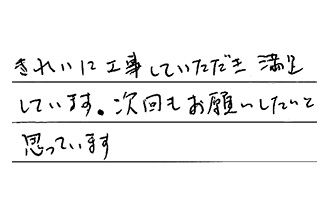 きれいに工事していただき 満足
しています。次回もお願いしたいと
思っています